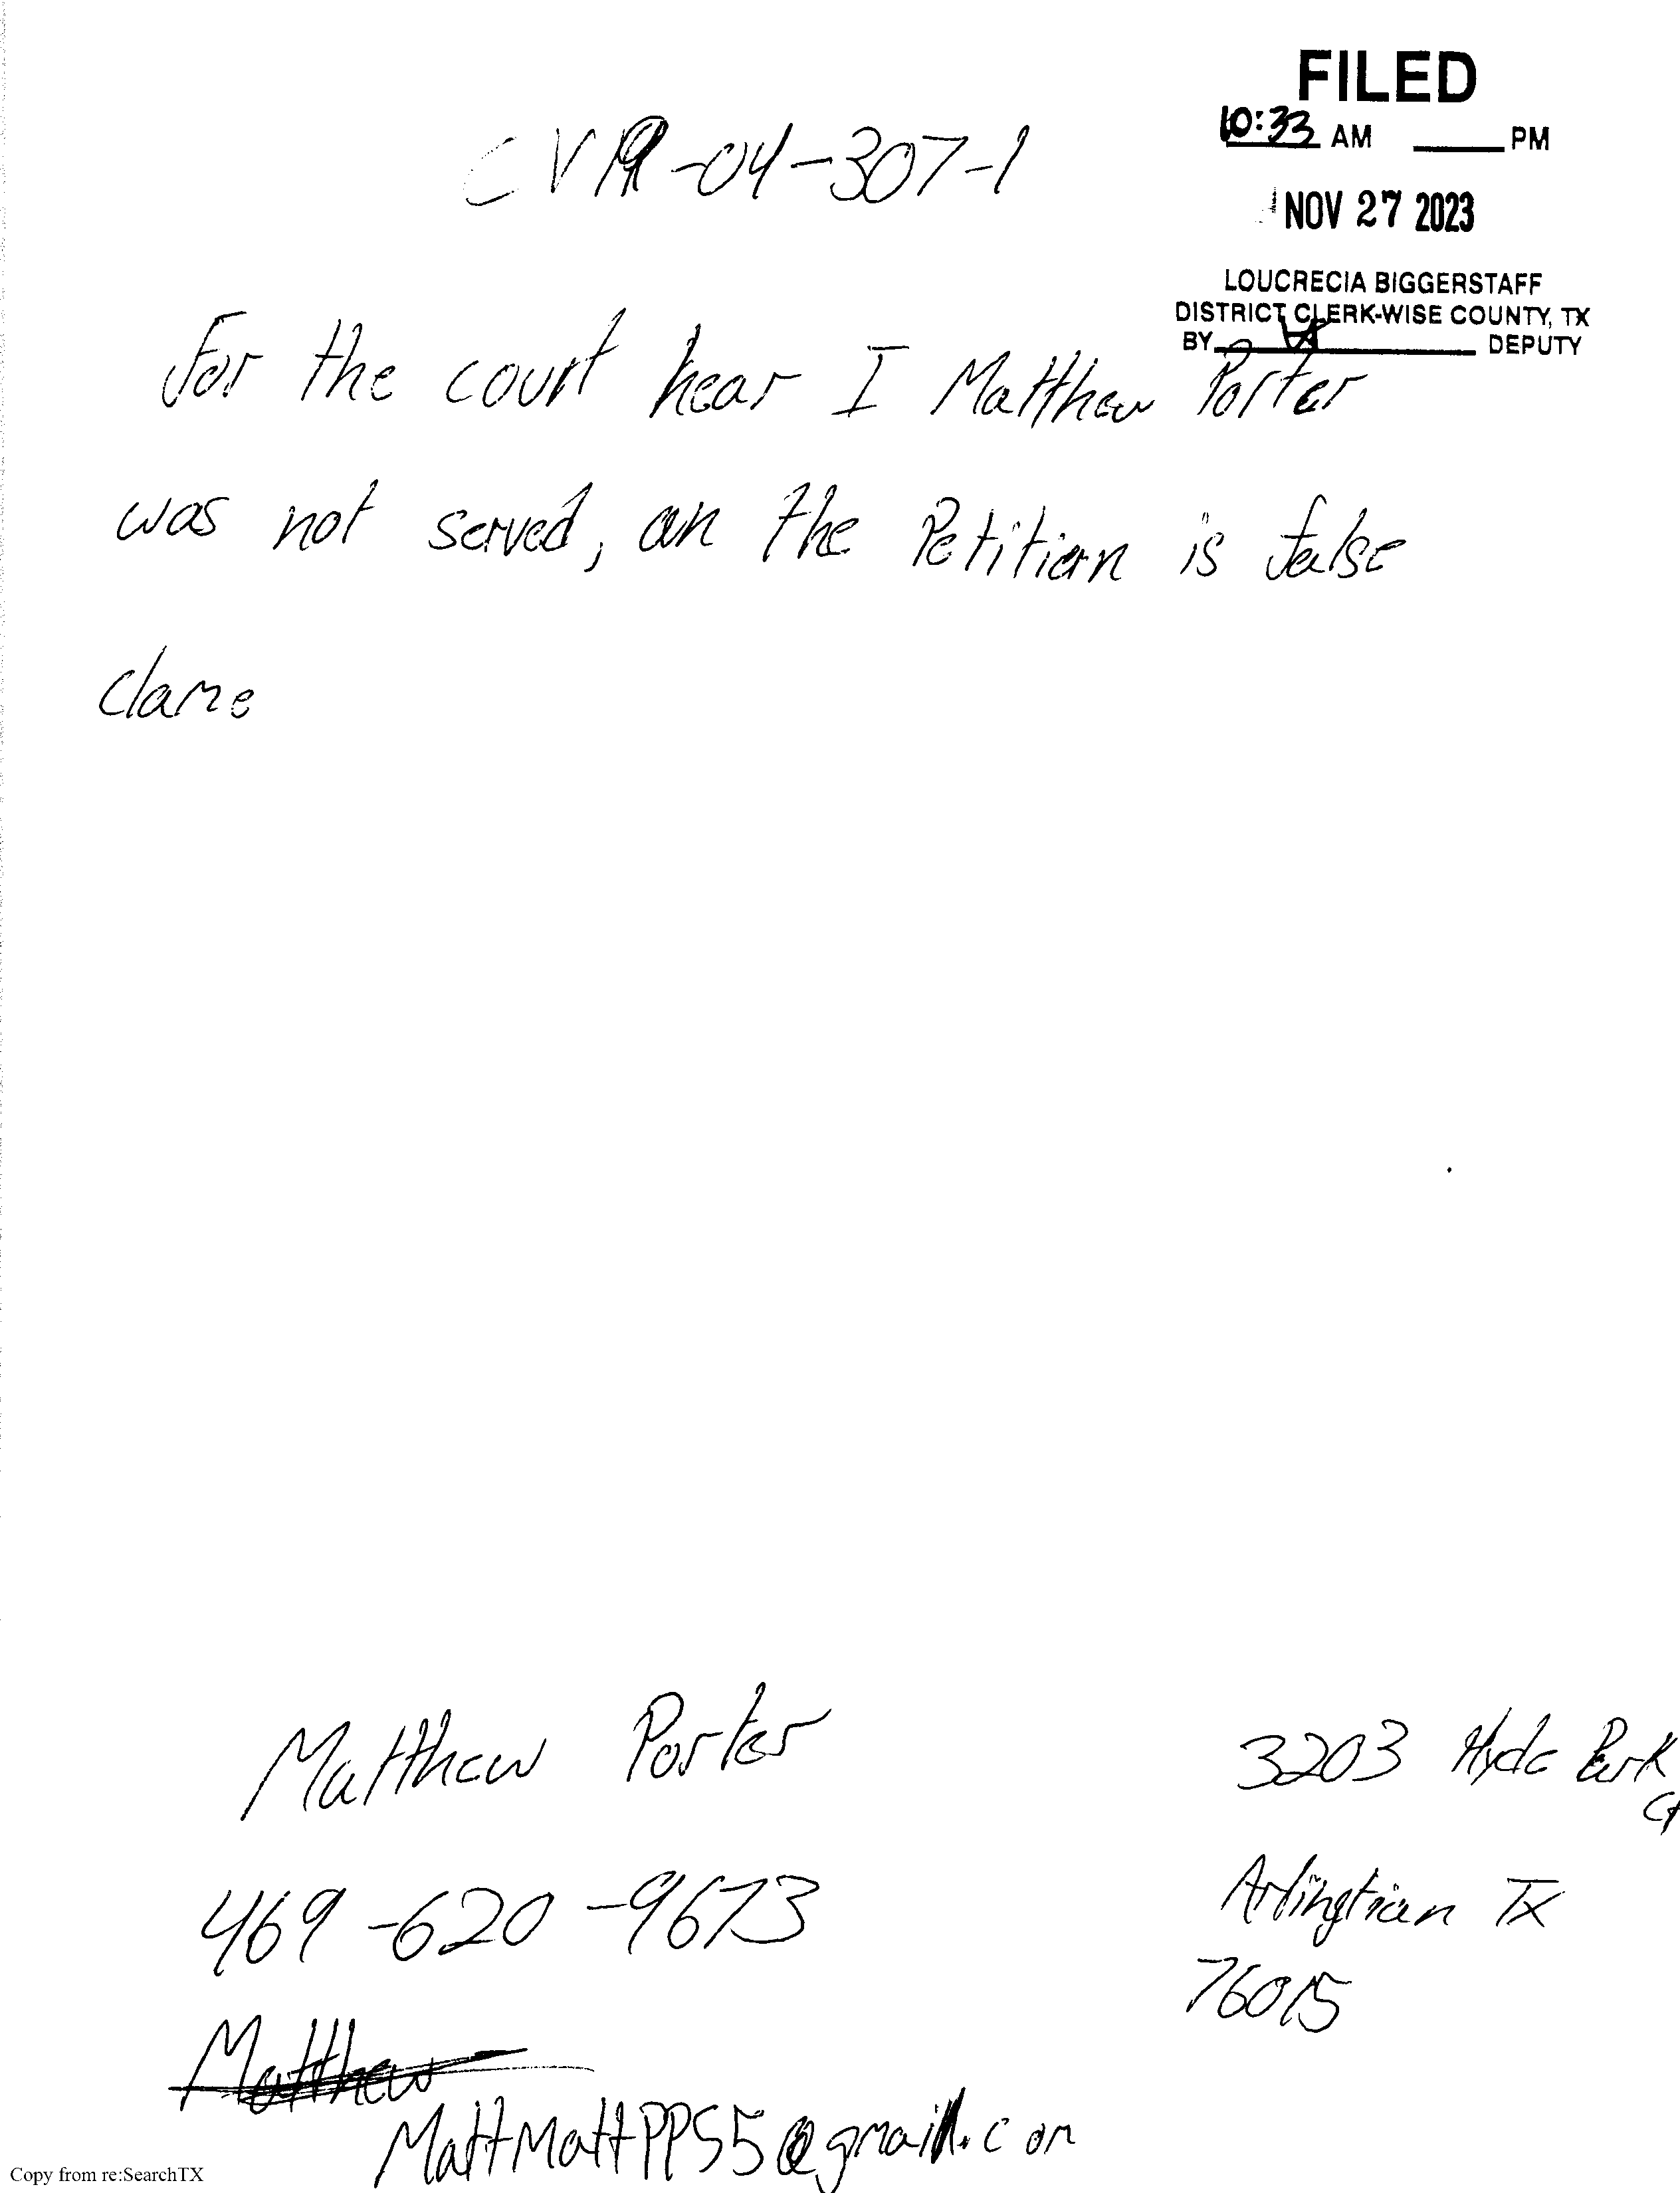 FILED
10:33 AM ____ PM
NOV 27 2023
LOUCRECIA BIGGERSTAFF
DISTRICT CLERK-WISE COUNTY, TX
BY ____ DEPUTY
-04-307-1
for the court hear I Matthew Porter
was not served, an the Petition is false
clame
Matthew Porter
469-620-9673
Matthew
MattMattPPS5@gmail.com
3203 Hyde Park
Ct
Arlingtion TX
76015
Copy from re:SearchTX